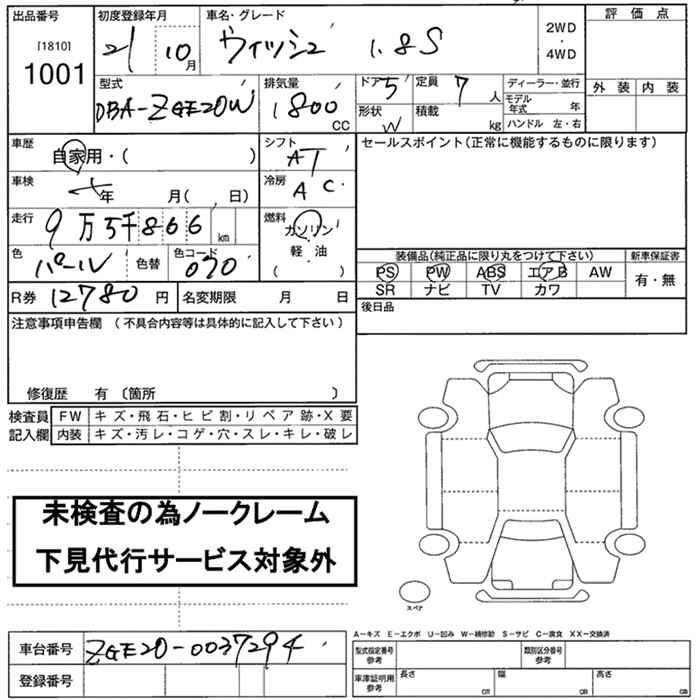 出品番号 初度登録年月 車名・グレード 評価点
[1810] 21 10月 ウィッシュ 1.8S 2WD・4WD
1001
外装 内装
型式 排気量 ドア 5 定員 7人 ディーラー・並行
DBA-ZGE20W 1800CC 形状 W 積載 kg モデル年式 年
ハンドル 左・右
車歴 自家用・( ) シフト AT セールスポイント(正常に機能するものに限ります)
車検 年 月( 、 日) 冷房 AC
走行 9万5千866km 燃料 ガソリン 軽油 ( )
色 パール 色替 色コード 070
装備品(純正品に限り丸をつけて下さい) 新車保証書
PS PW ABS エアB AW 有・無
SR ナビ TV カワ
R券 12780円 名変期限 月 日 後日品
注意事項申告欄 (不具合内容等は具体的に記入して下さい)
修復歴 有 〔箇所 〕
検査員記入欄 FW キズ・飛石・ヒビ割・リペア跡・X要
内装 キズ・汚レ・コゲ・穴・スレ・キレ・破レ
未検査の為ノークレーム
下見代行サービス対象外
スペア
A-キズ E-エクボ U-凹み W-補修跡 S-サビ C-腐食 XX-交換済
車台番号 ZGE20-0037294 型式指定番号 参考 類別区分番号 参考
登録番号 車庫証明用 参考 長さ cm 幅 cm 高さ cm